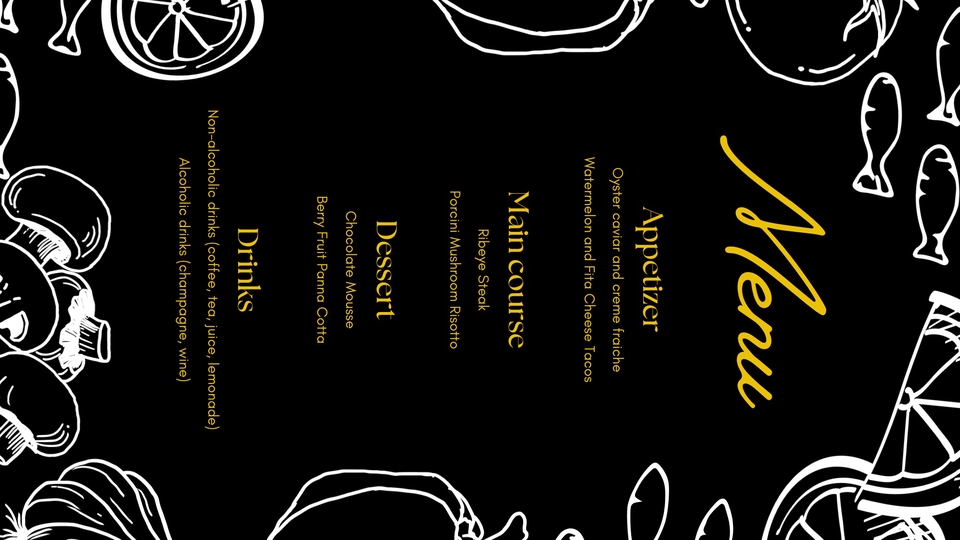 Menu
Appetizer
Oyster caviar and creme fraiche
Watermelon and Fita Cheese Tacos
Main course
Ribeye Steak
Porcini Mushroom Risotto
Dessert
Chocolate Mousse
Berry Fruit Panna Cotta
Drinks
Non-alcoholic drinks (coffee, tea, juice, lemonade)
Alcoholic drinks (champagne, wine)